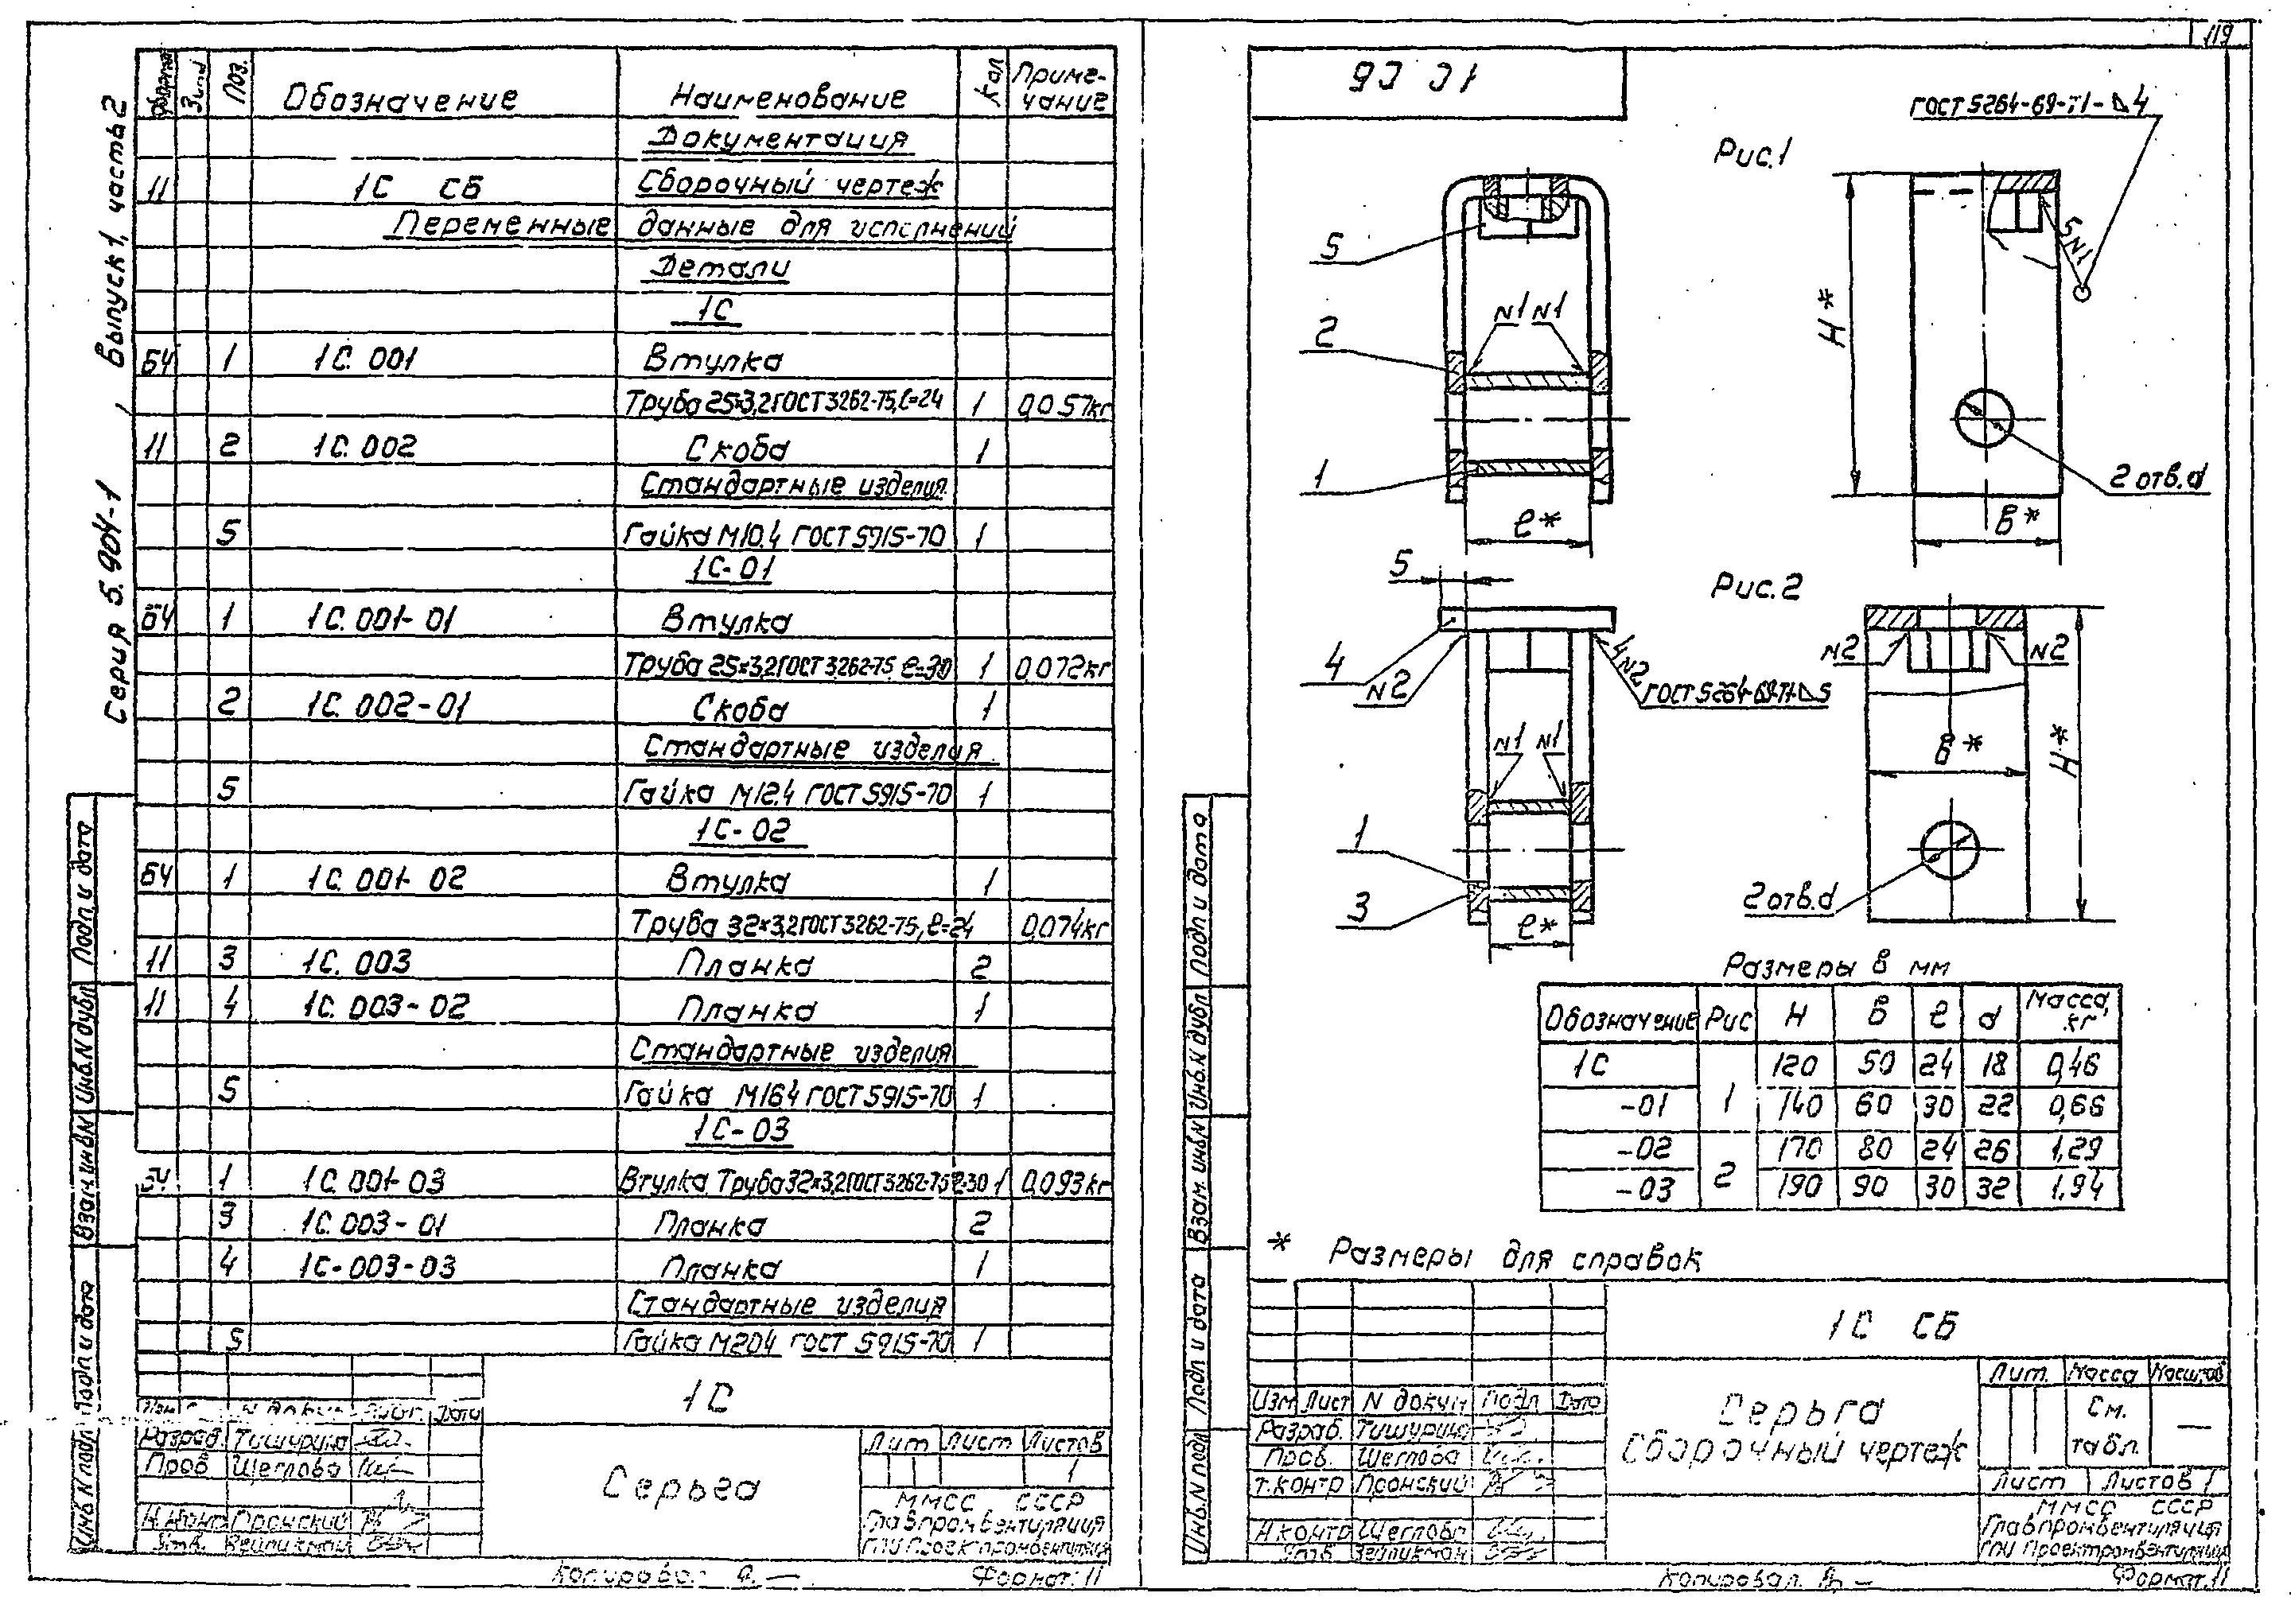 Серия 5.904-1 Выпуск 1, часть 2
Формат Зона Поз. Обозначение Наименование Кол Приме-
чание
Документация
11 1С СБ Сборочный чертеж
Переменные данные для исполнений
Детали
1С
БЧ 1 1С. 001 Втулка
Труба 25×3,2 ГОСТ 3262-75, ℓ=24 1 0,057кг
11 2 1С. 002 Скоба 1
Стандартные изделия
5 Гайка М10.4 ГОСТ 5915-70 1
1С-01
БЧ 1 1С. 001-01 Втулка
Труба 25×3,2 ГОСТ 3262-75 ℓ=30 1 0,072кг
2 1С. 002-01 Скоба 1
Стандартные изделия
5 Гайка М12.4 ГОСТ 5915-70 1
1С-02
БЧ 1 1С. 001-02 Втулка 1
Труба 32×3,2 ГОСТ 3262-75, ℓ=24 0,074кг
11 3 1С. 003 Планка 2
11 4 1С. 003-02 Планка 1
Стандартные изделия
5 Гайка М16.4 ГОСТ 5915-70 1
1С-03
БЧ 1 1С. 001-03 Втулка Труба 32×3,2 ГОСТ 3262-75 ℓ=30 1 0,093кг
3 1С. 003-01 Планка 2
4 1С-003-03 Планка 1
Стандартные изделия
5 Гайка М20.4 ГОСТ 5915-70 1
1С
Дата
Разраб. Тишурина
Пров Щеглова
Н.контр Пронский
Утв.
Серьга
Лит Лист Листов
1
ММСС СССР
Главпромвентиляция
ГПИ Проектпромвентиляция
Копировал Формат: 11
Подп. и дата
Инв. N дубл
Взам. инв. N
Подп и дата
Инв. N подл
119
1С СБ
ГОСТ 5264-69-Т1-⊿4
Рис.1
5 N1
5
2
N1 N1
1
ℓ*
H*
2 отв. d
в*
5
Рис.2
4
N2
4 N2
ГОСТ 5264-69-Т1-⊿5
N1 N1
1
3
ℓ*
N2 N2
в*
H*
2 отв. d
Размеры в мм
Обозначение Рис H в ℓ d Масса, кг
1С 1 120 50 24 18 0,46
-01 140 60 30 22 0,66
-02 2 170 80 24 26 1,29
-03 190 90 30 32 1,94
* Размеры для справок
1С СБ
Изм Лист N докум Подп Дата
Разраб. Тишурина
Пров. Щеглова
Т.контр Пронский
Н.контр Щеглова
Утв
Серьга
Сборочный чертеж
Лит. Масса Масштаб
См.
табл. —
Лист Листов 1
ММСС СССР
Главпромвентиляция
ГПИ Проектпромвентиляция
Копировал. Формат. 11
Подп и дата
Инв. N дубл
Взам. инв. N
Подп и дата
Инв. N подл